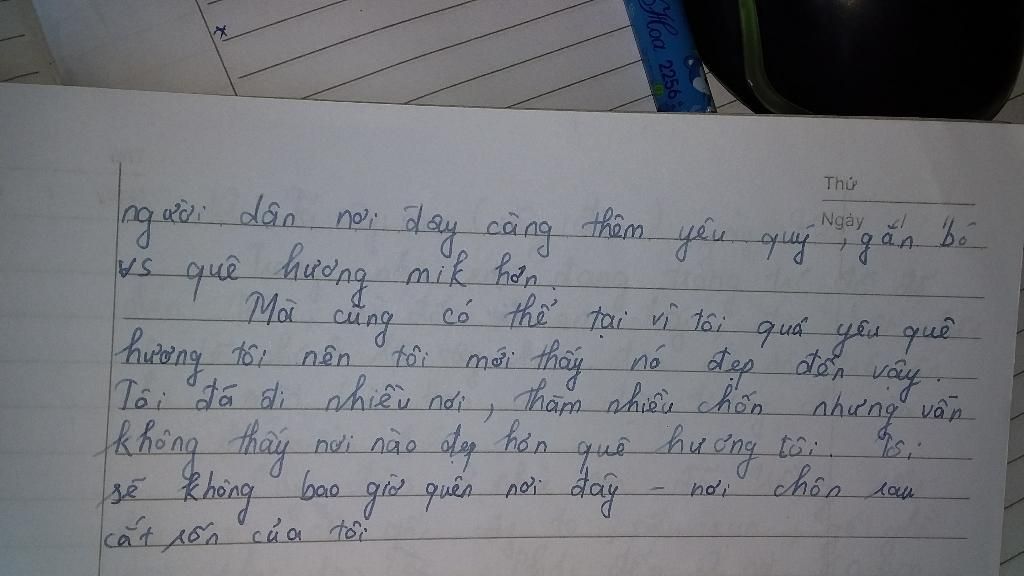 Hoa 2256
Thứ
Ngày
người dân nơi đây càng thêm yêu quý, gắn bó
vs quê hương mik hơn.
Mà cũng có thể tại vì tôi quá yêu quê
hương tôi nên tôi mới thấy nó đẹp đến vậy.
Tôi đã đi nhiều nơi, thăm nhiều chốn nhưng vẫn
không thấy nơi nào đẹp hơn quê hương tôi. Tôi
sẽ không bao giờ quên nơi đấy - nơi chôn rau
cắt rốn của tôi